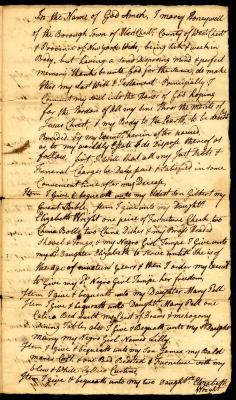 In the Name of God Amen, I Mary Honeywell
of the Borough Town of Westchester County of West Chest
& Province of New York Wido, being sick & weak in
Body, but having a sound disposing mind & perfect
memory thanks be unto God for the same, do make
this my Last Will & Testament. Principally I
Commit my soul into the hands of God hoping
for the Pardon of all my Sins thro the merits of
Jesus Christ & my Body to the Earth, to be
Buried by my Execut. herein after named,
as to my worldly Estate I do dispose thereof as
follows, first I Will that all my Just Debts &
Funeral Charges be Duly paid & satisfied in some
Convenient time after my Decease.
Item I give & bequeath unto my
Great I give unto my Daught.
Elizabeth Wright one piece of Furniture Check two
China Bolls two China Dishes & my Brass Headed
Shovel & Tongs, & my Negro Girl Tempe I Give unto
my sd Daughter Elizabeth to serve untill she is of
the age of nineteen years & then I order my Execut
to Give sd Negro Girl Tempe her freedom.
Item I Give & bequeath unto my Daughter Mary Bell
Item I Give & bequeath unto my Daught. Mary Bell one
Calico Bed Quilt my Chest of Draws & mahogany
Dining Table, also I Give & Bequeath unto my sd Daught
Mary my Negro Girl Named Lilly
Item I Give & bequeath unto my Son James my Bald
mares Colt & one Bed Bedsted & Furniture with my
blue & White Callico Curtins
Item I give & bequeath unto my two Daughters Elizabeth
Wright